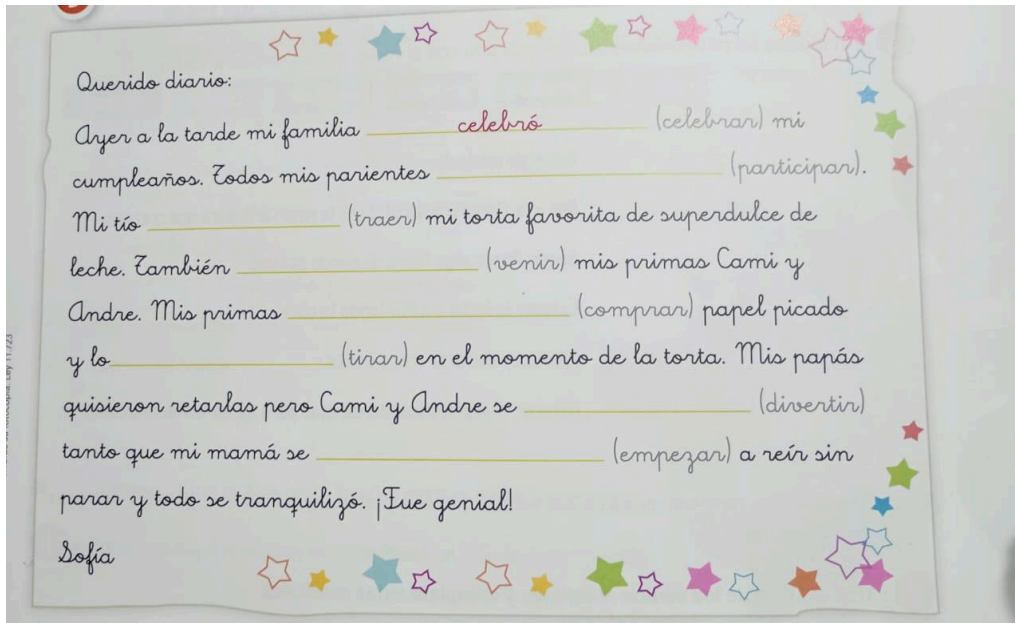 Querido diario:
Ayer a la tarde mi familia celebró (celebrar) mi
cumpleaños. Todos mis parientes (participar).
Mi tío (traer) mi torta favorita de superdulce de
leche. También (venir) mis primas Cami y
Andre. Mis primas (comprar) papel picado
y lo (tirar) en el momento de la torta. Mis papás
quisieron retarlas pero Cami y Andre se (divertir)
tanto que mi mamá se (empezar) a reír sin
parar y todo se tranquilizó. ¡Fue genial!
Sofía